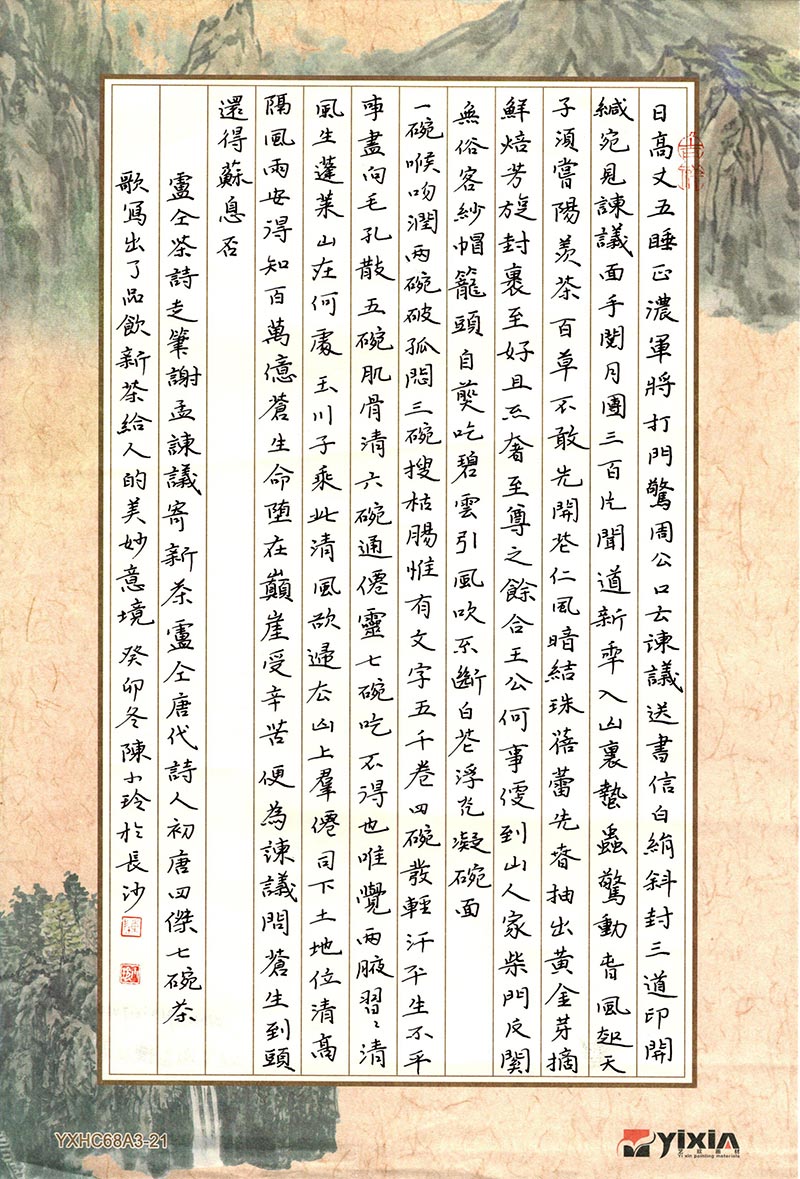 日高丈五睡正濃軍將打門驚周公口云諫議送書信白絹斜封三道印開
緘宛見諫議面手閱月團三百片聞道新年入山裏蟄蟲驚動春風起天
子須嘗陽羨茶百草不敢先開花仁風暗結珠蓓蕾先春抽出黃金芽摘
鮮焙芳旋封裹至好且不奢至尊之餘合王公何事便到山人家柴門反關
無俗客紗帽籠頭自煎吃碧雲引風吹不斷白花浮光凝碗面
一碗喉吻潤兩碗破孤悶三碗搜枯腸惟有文字五千卷四碗發輕汗平生不平
事盡向毛孔散五碗肌骨清六碗通僊靈七碗吃不得也唯覺兩腋習〻清
風生蓬萊山在何處玉川子乘此清風欲歸去山上羣僊司下土地位清高
隔風雨安得知百萬億蒼生命墮在巔崖受辛苦便為諫議問蒼生到頭
還得蘇息否
盧仝茶詩走筆謝孟諫議寄新茶盧仝唐代詩人初唐四傑七碗茶
歌寫出了品飲新茶給人的美妙意境癸卯冬陳小玲於長沙
吉祥
YXHC68A3-21
yixin
艺欣画材
Yi xin painting materials